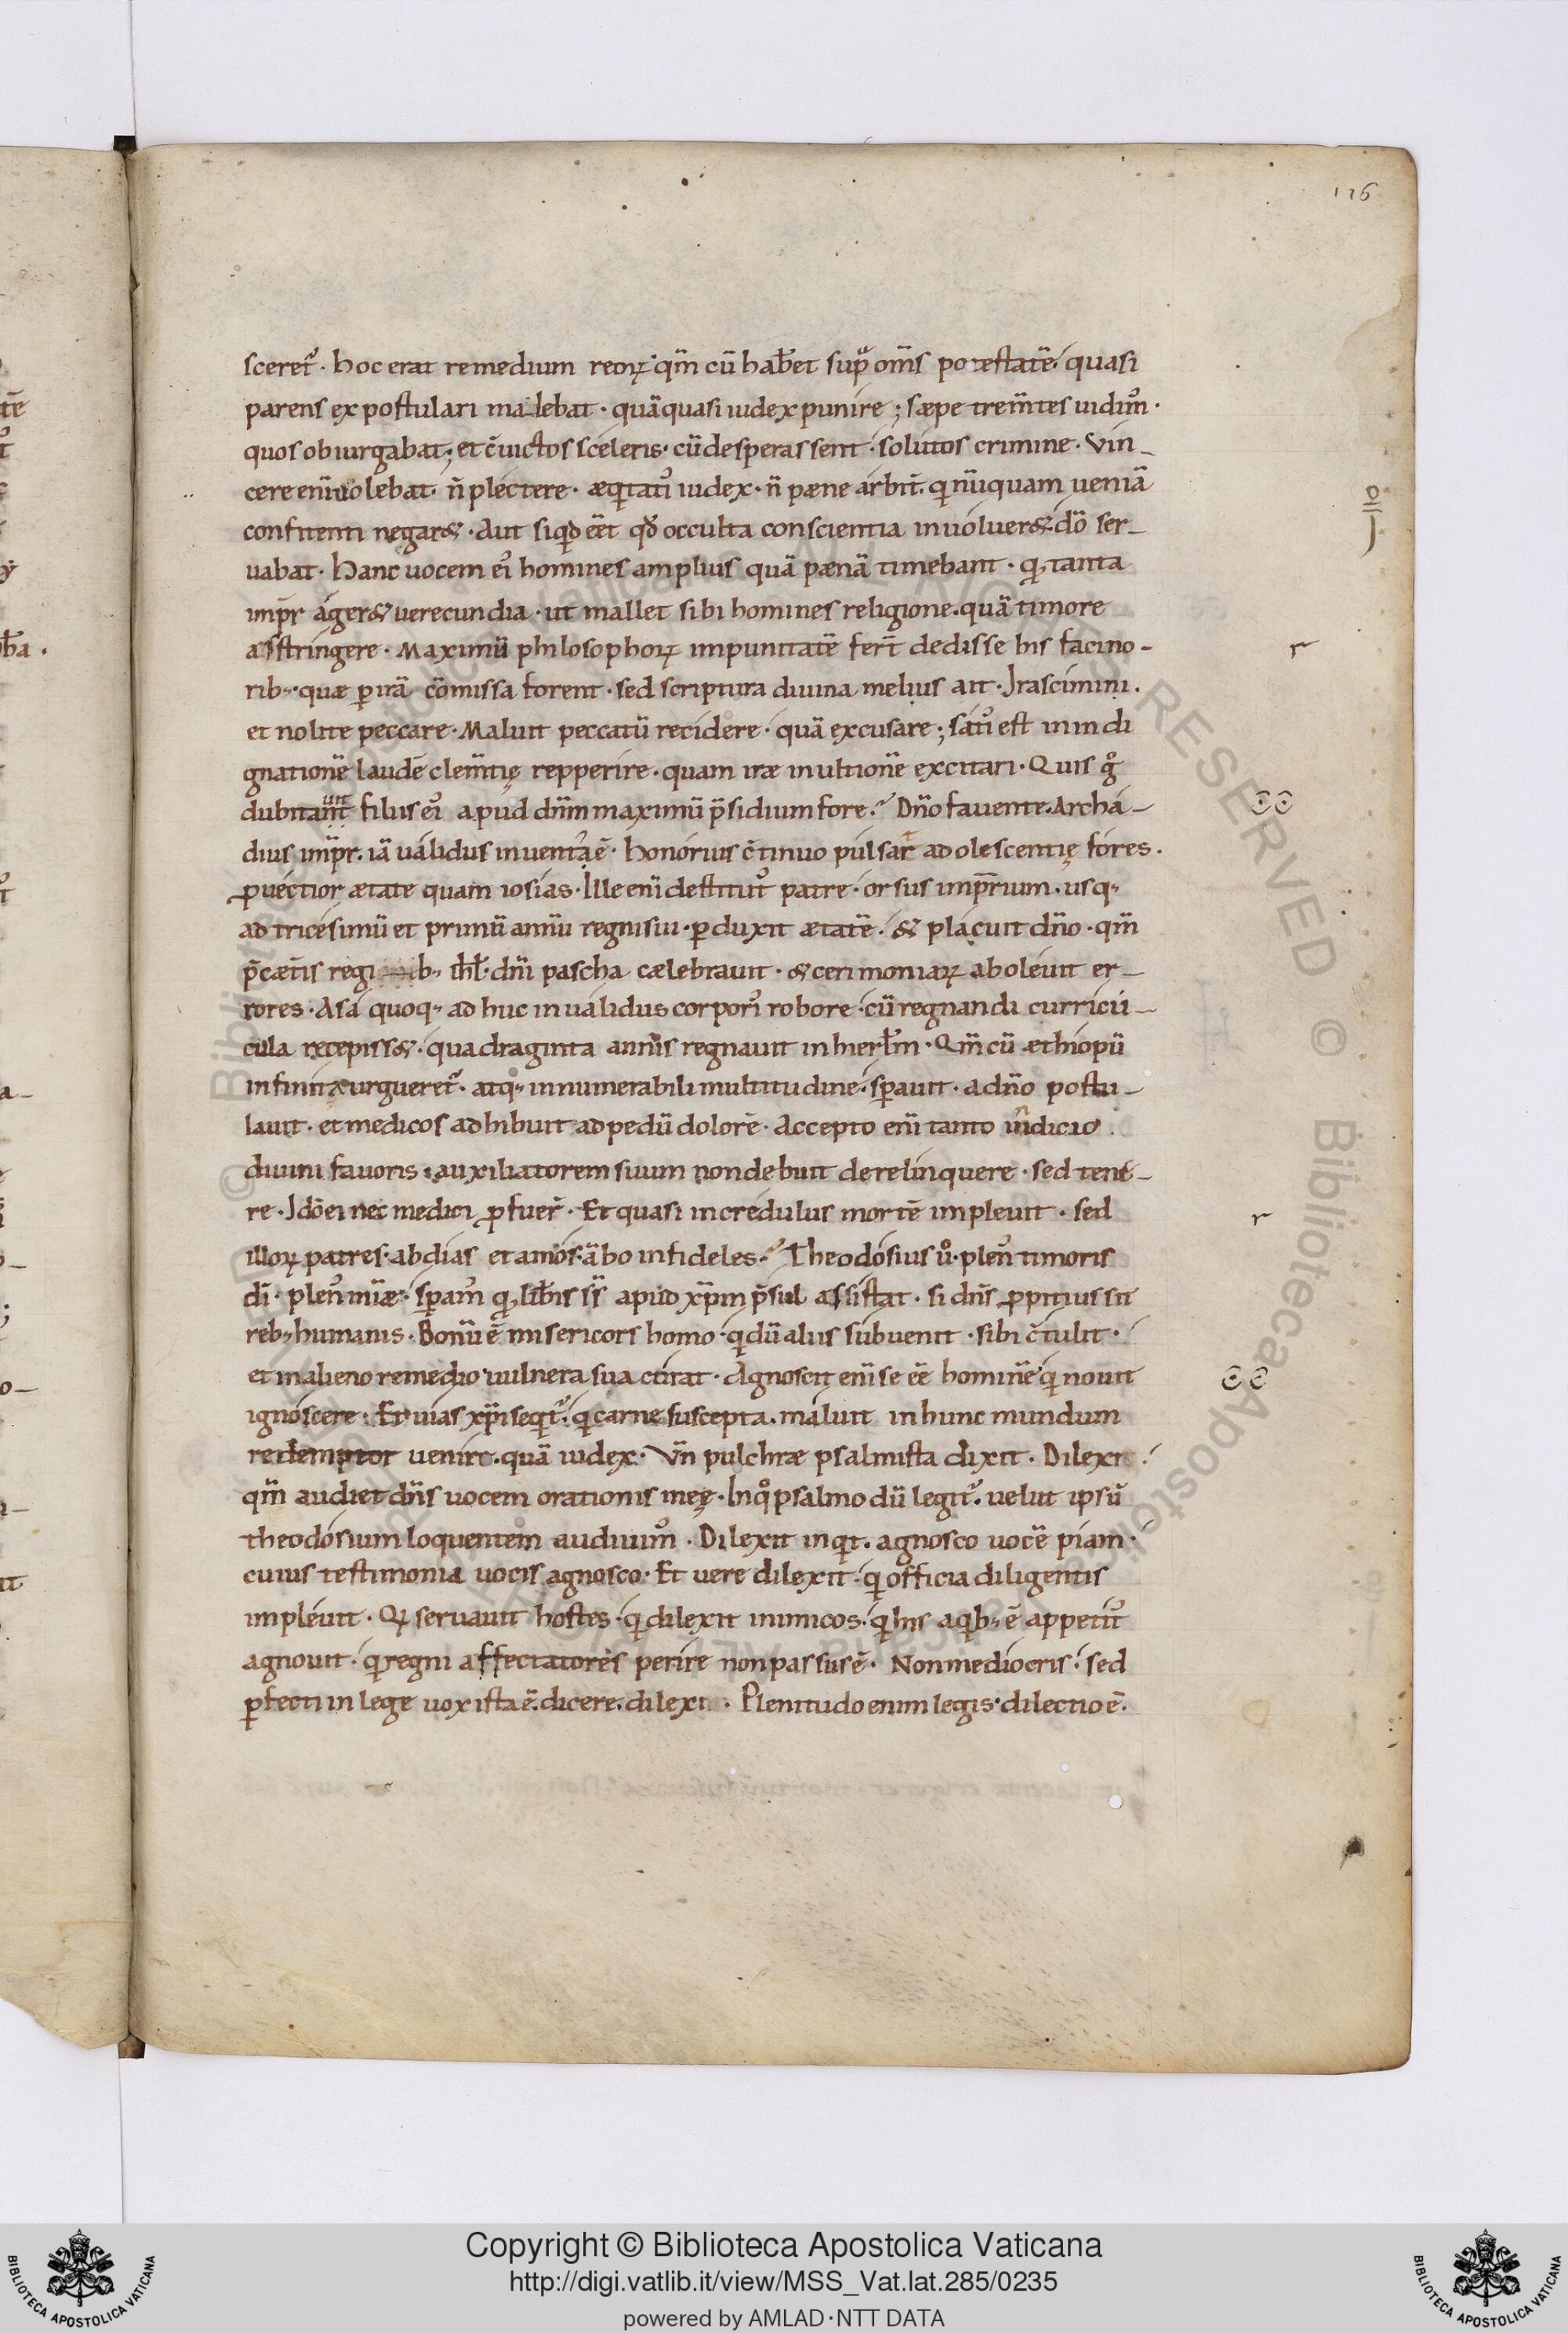 116
sceret᷑ · hoc erat remedium reoꝝ · qm̄ cū hab̄et sup᷑ om̄s potestatē · quasi
parens expostulari mallebat · quāquasi iudex punire ; sæpe trem̄tes uidim᷒ ·
quos obiurgabat ; et c̄uictos sceleris · cūdesperassent · solutos crimine · Vin_
cere enīuolebat · n̄ plectere · æq̨tatis iudex · n̄ pæne arbit̄ · q̨ nūquam ueniā
confitenti negar& · Aut siq̨d eēt qđ occulta conscientia inuoluer& · dō ser_
uabat · Hanc uocem ei᷒ homines amplius quā pænā timebant · q̨ tanta
imp̄r ager& uerecundia · ut mallet sibi homines religione · quā timore
asstringere · Maximū philosophoꝝ impunitatē fert̄ dedisse his facino-
rib᷒ · quæ ꝑ irā cōmissa forent · sed scriptura diuina melius ait · Irascimini ·
et nolite peccare · Maluit peccatū recidere · quā excusare ; sati᷒ est in indi
gnationē laudē clem̄tię repperire · quam iræ in ultionē excitari · Quis g᷒
dubitam̄t filiis ei᷒ apud dnm̄ maximū p̄sidium fore · Dn̄o fauente · Archa_
dius imp̄r · iā ualidus iuuenta ē · honorius c̄tinuo pulsat adolescentię fores ·
ꝓuectior ætate quam iosias · Ille enī destitut᷒ patre · orsus imp̄rium · usq᷒
ad tricesimū et primū annū regni sui · ꝑduxit ætatē · & placuit dn̄o · qm̄
p̄ cæt̄is regib᷒ iħl · dn̄i pascha cælebrauit · & cerimoniaꝝ aboleuit er_
rores · Asa quoq᷒ ad huc inualidus corpori᷒ robore · cū regnandi curricu_
cula recepiss& · quadraginta annis regnauit in hierl̄m · Qm̄ cū æthiopū
infinita urgueret᷑ · atq᷒ innumerabili multitudine · sꝑauit · a dn̄o postu_
lauit · et medicos adhibuit ad pedū dolorē · Accepto enī tanto indicio
diuini fauoris · auxiliatorem suum non debuit derelinquere · sed tene_
re · Idō ei nec medici ꝓfuer̄ · Et quasi incredulus mortē impleuit · sed
illoꝝ patres · abdias et amos · ābo infideles · Theodosius u᷒ · plen᷒ timoris
dī · plen᷒ mīæ · sꝑam᷒ q̨ lib̄is sīs apud xp̄m p̄sul assistat · si dn̄s ꝓpitius sit
reb᷒ humanis · Bonū ē misericors homo · q̨ dū aliis subuenit · sibi c̄tulit ·
et in alieno remedio uulnera sua curat · Agnoscit enī se eē hominē q̨ nouit
ignoscere · Et uias xp̄i seq̨t᷑ · q̨ carne suscepta · maluit in hunc mundum
redemptor uenire · quā iudex · Vn̄ pulchræ psalmista dixit · Dilexi ·
qm̄ audiet dn̄s uocem orationis meę · In q᷒ psalmo dū legit᷑ · uelut ipsū
theodosium loquentem audiuim᷒ · Dilexit inq̨t · agnosco uocē piam ·
cuius testimonia uocis agnosco · Et uere dilexit · q̨ officia diligentis
impleuit · Qꝝ seruauit hostes · q̨ dilexit inimicos · q̨ his aq̨b᷒ ē appetit᷒
agnouit · q̨ regni affectatores perire non passus ē · Non mediocris · sed
ꝑfecti in lege uox ista ē · dicere · dilexi · Plenitudo enim legis · dilectio ē ·
Copyright © Biblioteca Apostolica Vaticana
http://digi.vatlib.it/view/MSS_Vat.lat.285/0235
powered by AMLAD·NTT DATA